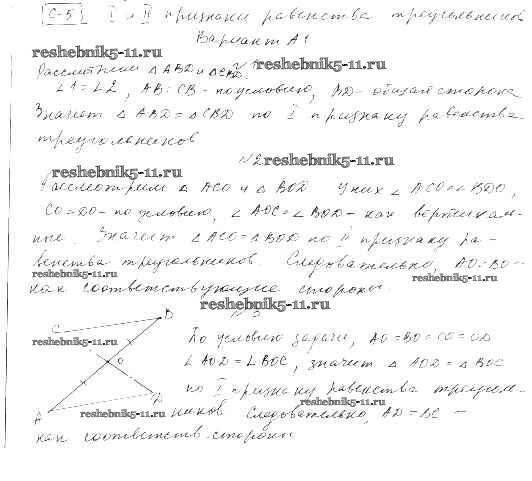 С-5 I и II признаки равенства треугольников
Вариант А1
reshebnik5-11.ru
№1 reshebnik5-11.ru
Рассмотрим △ ABD и △CBD
∠1 = ∠2, AB = CB - по условию, BD - общая сторона
Значит △ ABD = △CBD по I признаку равенства
треугольников
№2 reshebnik5-11.ru
reshebnik5-11.ru
Рассмотрим △ ACO и △ BOD У них ∠ ACO = ∠ BDO,
CO = DO - по условию, ∠ AOC = ∠ BOD - как вертикаль-
ные. Значит △ ACO = △ BOD по II признаку ра-
венства треугольников. Следовательно, AO = BO -
reshebnik5-11.ru
reshebnik5-11.ru
как соответствующие стороны.
reshebnik5-11.ru
№3
B
C
O
reshebnik5-11.ru
По условию задачи, AO = BO = CO = OD
∠ AOD = ∠ BOC, значит △ AOD = △ BOC
D
по I признаку равенства треуголь-
reshebnik5-11.ru
A
reshebnik5-11.ru
ников Следовательно, AD = BC -
как соответств. стороны